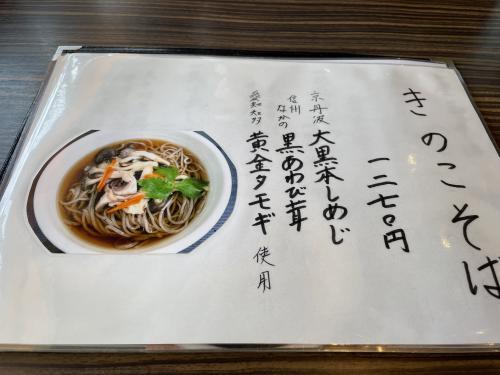 きのこそば
一二七〇円
京丹波 大黒本しめじ
信州 なかの 黒あわび茸
愛知知多 黄金タモギ 使用